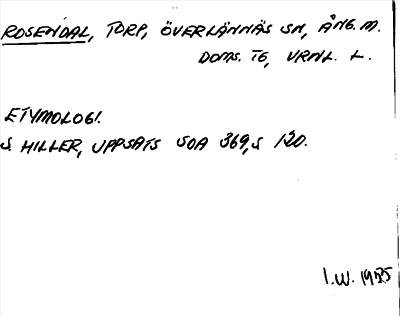 ROSENDAL, TORP, ÖVERLÄNNÄS SN, ÅNG. M.
DOMS. TG, VRNL. L.
ETYMOLOGI.
S. HILLER, UPPSATS SOA 369, S 120.
I.W. 1935